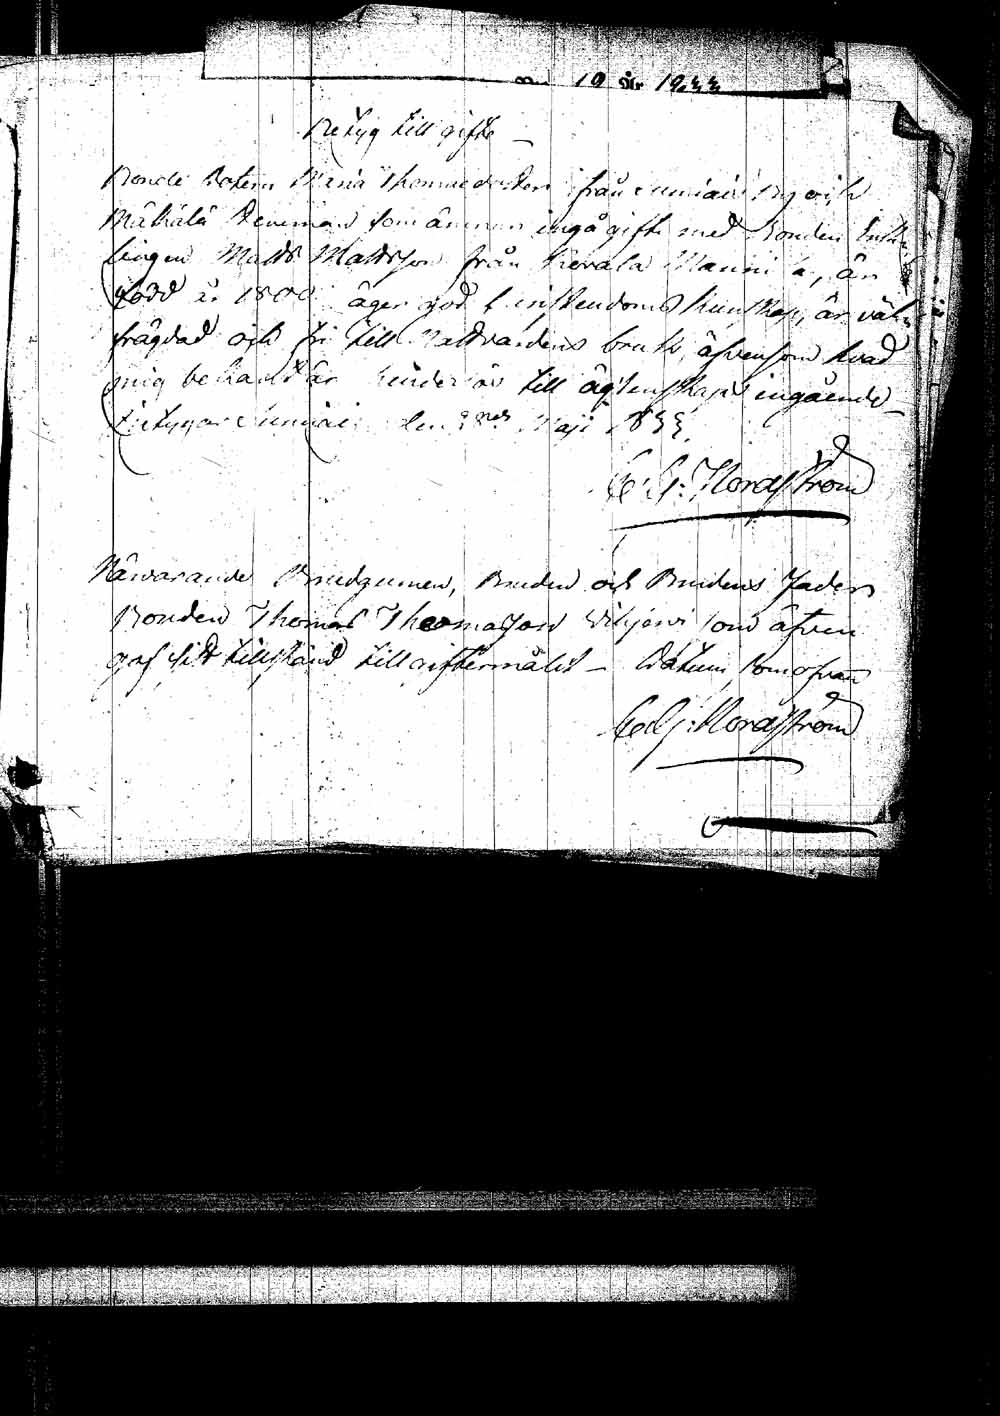 19 år 1833
Betyg till gifte
Bonde Dotern Maria Thomaedotter från by och
hemman som ämnar ingå gifte med Bonden Enk-
lingen Matts Mattsson från är
född år 1800 äger god christendoms kunskap, är väl
frägdad och fri till Nattvardens bruk, äfvensom hvad
mig bekant är hinderlös till ägtenskaps ingående
betygar den Maji 1833
C. G. Nordström
Närvarande Brudgumen, Bruden och Brudens Fader
Bonden Thomas Thomasson som äfven
gaf sitt tillstånd till giftermålet – Datum som ofvan
C. G. Nordström